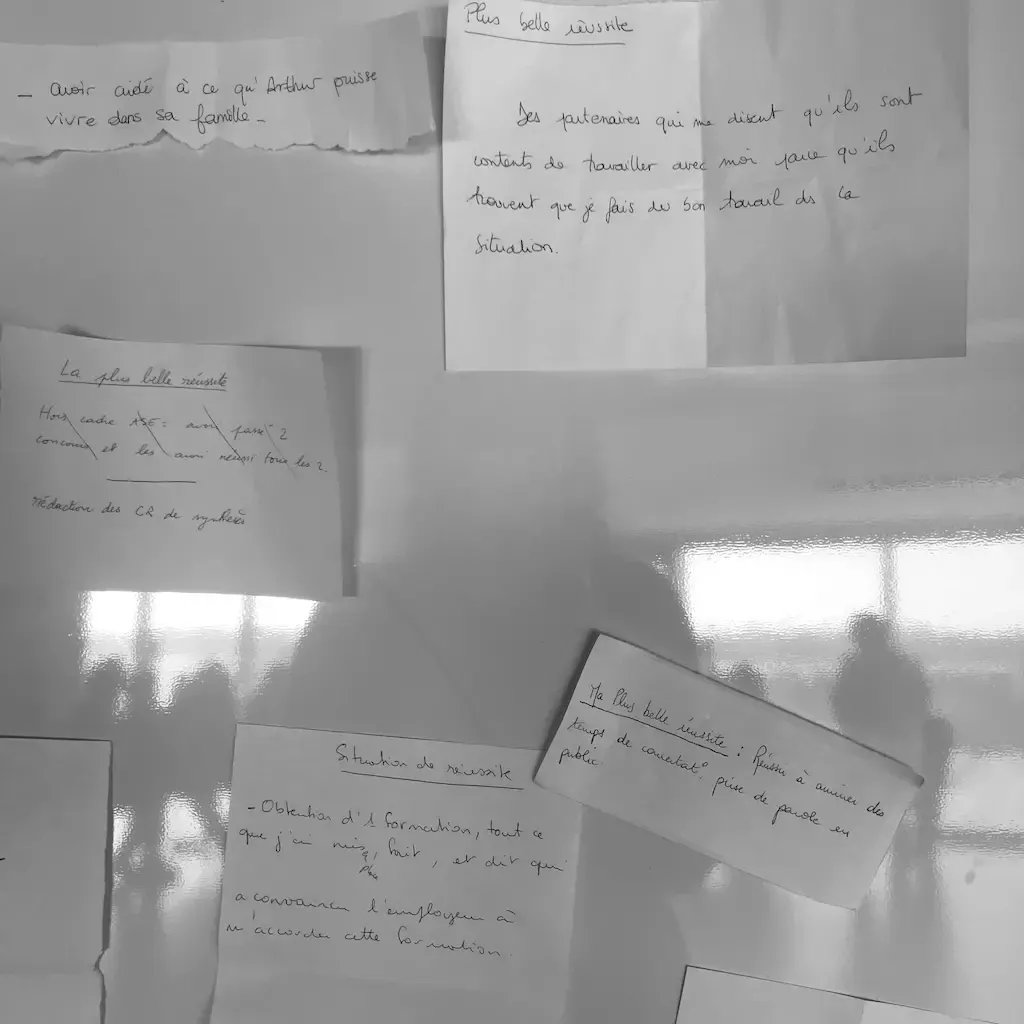 - avoir aidé à ce qu'Arthur puisse
vivre dans sa famille -
Plus belle réussite
Des partenaires qui me disent qu'ils sont
contents de travailler avec moi parce qu'ils
trouvent que je fais du bon travail ds la
situation.
La plus belle réussite
Hors cadre ASE : avoir passé 2
concours et les avoir réussi tous les 2.
rédaction des CR de synthèses
Ma Plus belle réussite : Réussir à animer des
temps de concertat°, prise de parole en
public.
Situation de réussite
- Obtention d'1 formation, tout ce
que j'ai mis, fait, et dit qui
a convaincu l'employeur à
m'accorder cette formation.